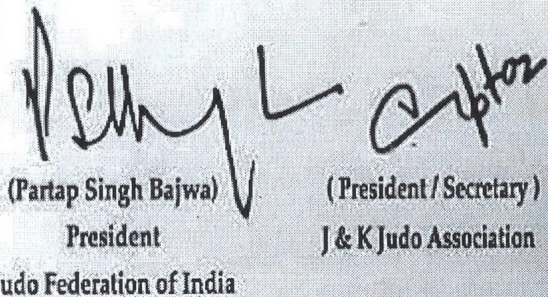 (Partap Singh Bajwa)
President
udo Federation of India
(President / Secretary)
J & K Judo Association